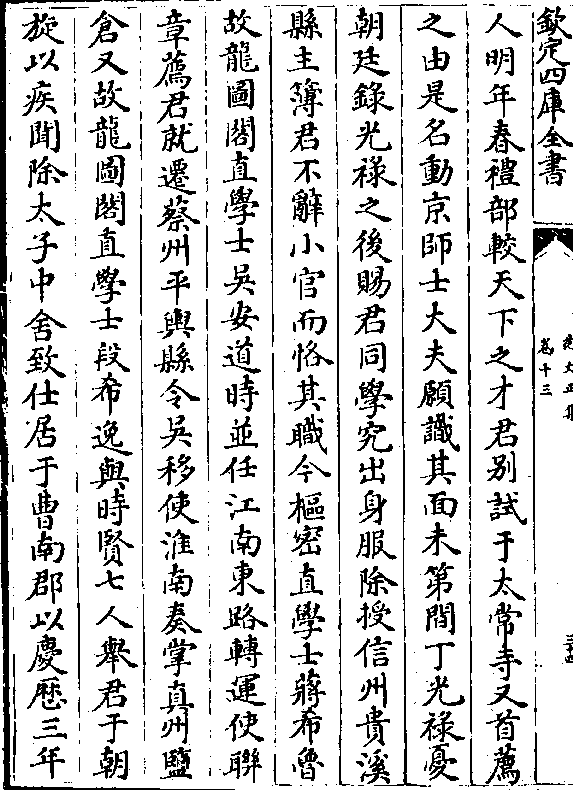 欽定四庫全書
卷十三
人明年春禮部較天下之才君别試于太常寺又首薦
之由是名動京師士大夫願識其面未第間丁光禄憂
朝廷錄光禄之後賜君同學究出身服除授信州貴溪
縣主簿君不辭小官而恪其職今樞密直學士蔣希魯
故龍圖閣直學士吳安道時並任江南東路轉運使聯
章薦君就遷蔡州平輿縣令吳移使淮南奏掌真州鹽
倉又故龍圖閣直學士段希逸與時賢七人舉君于朝
旋以疾聞除太子中舍致仕居于曹南郡以慶厯三年